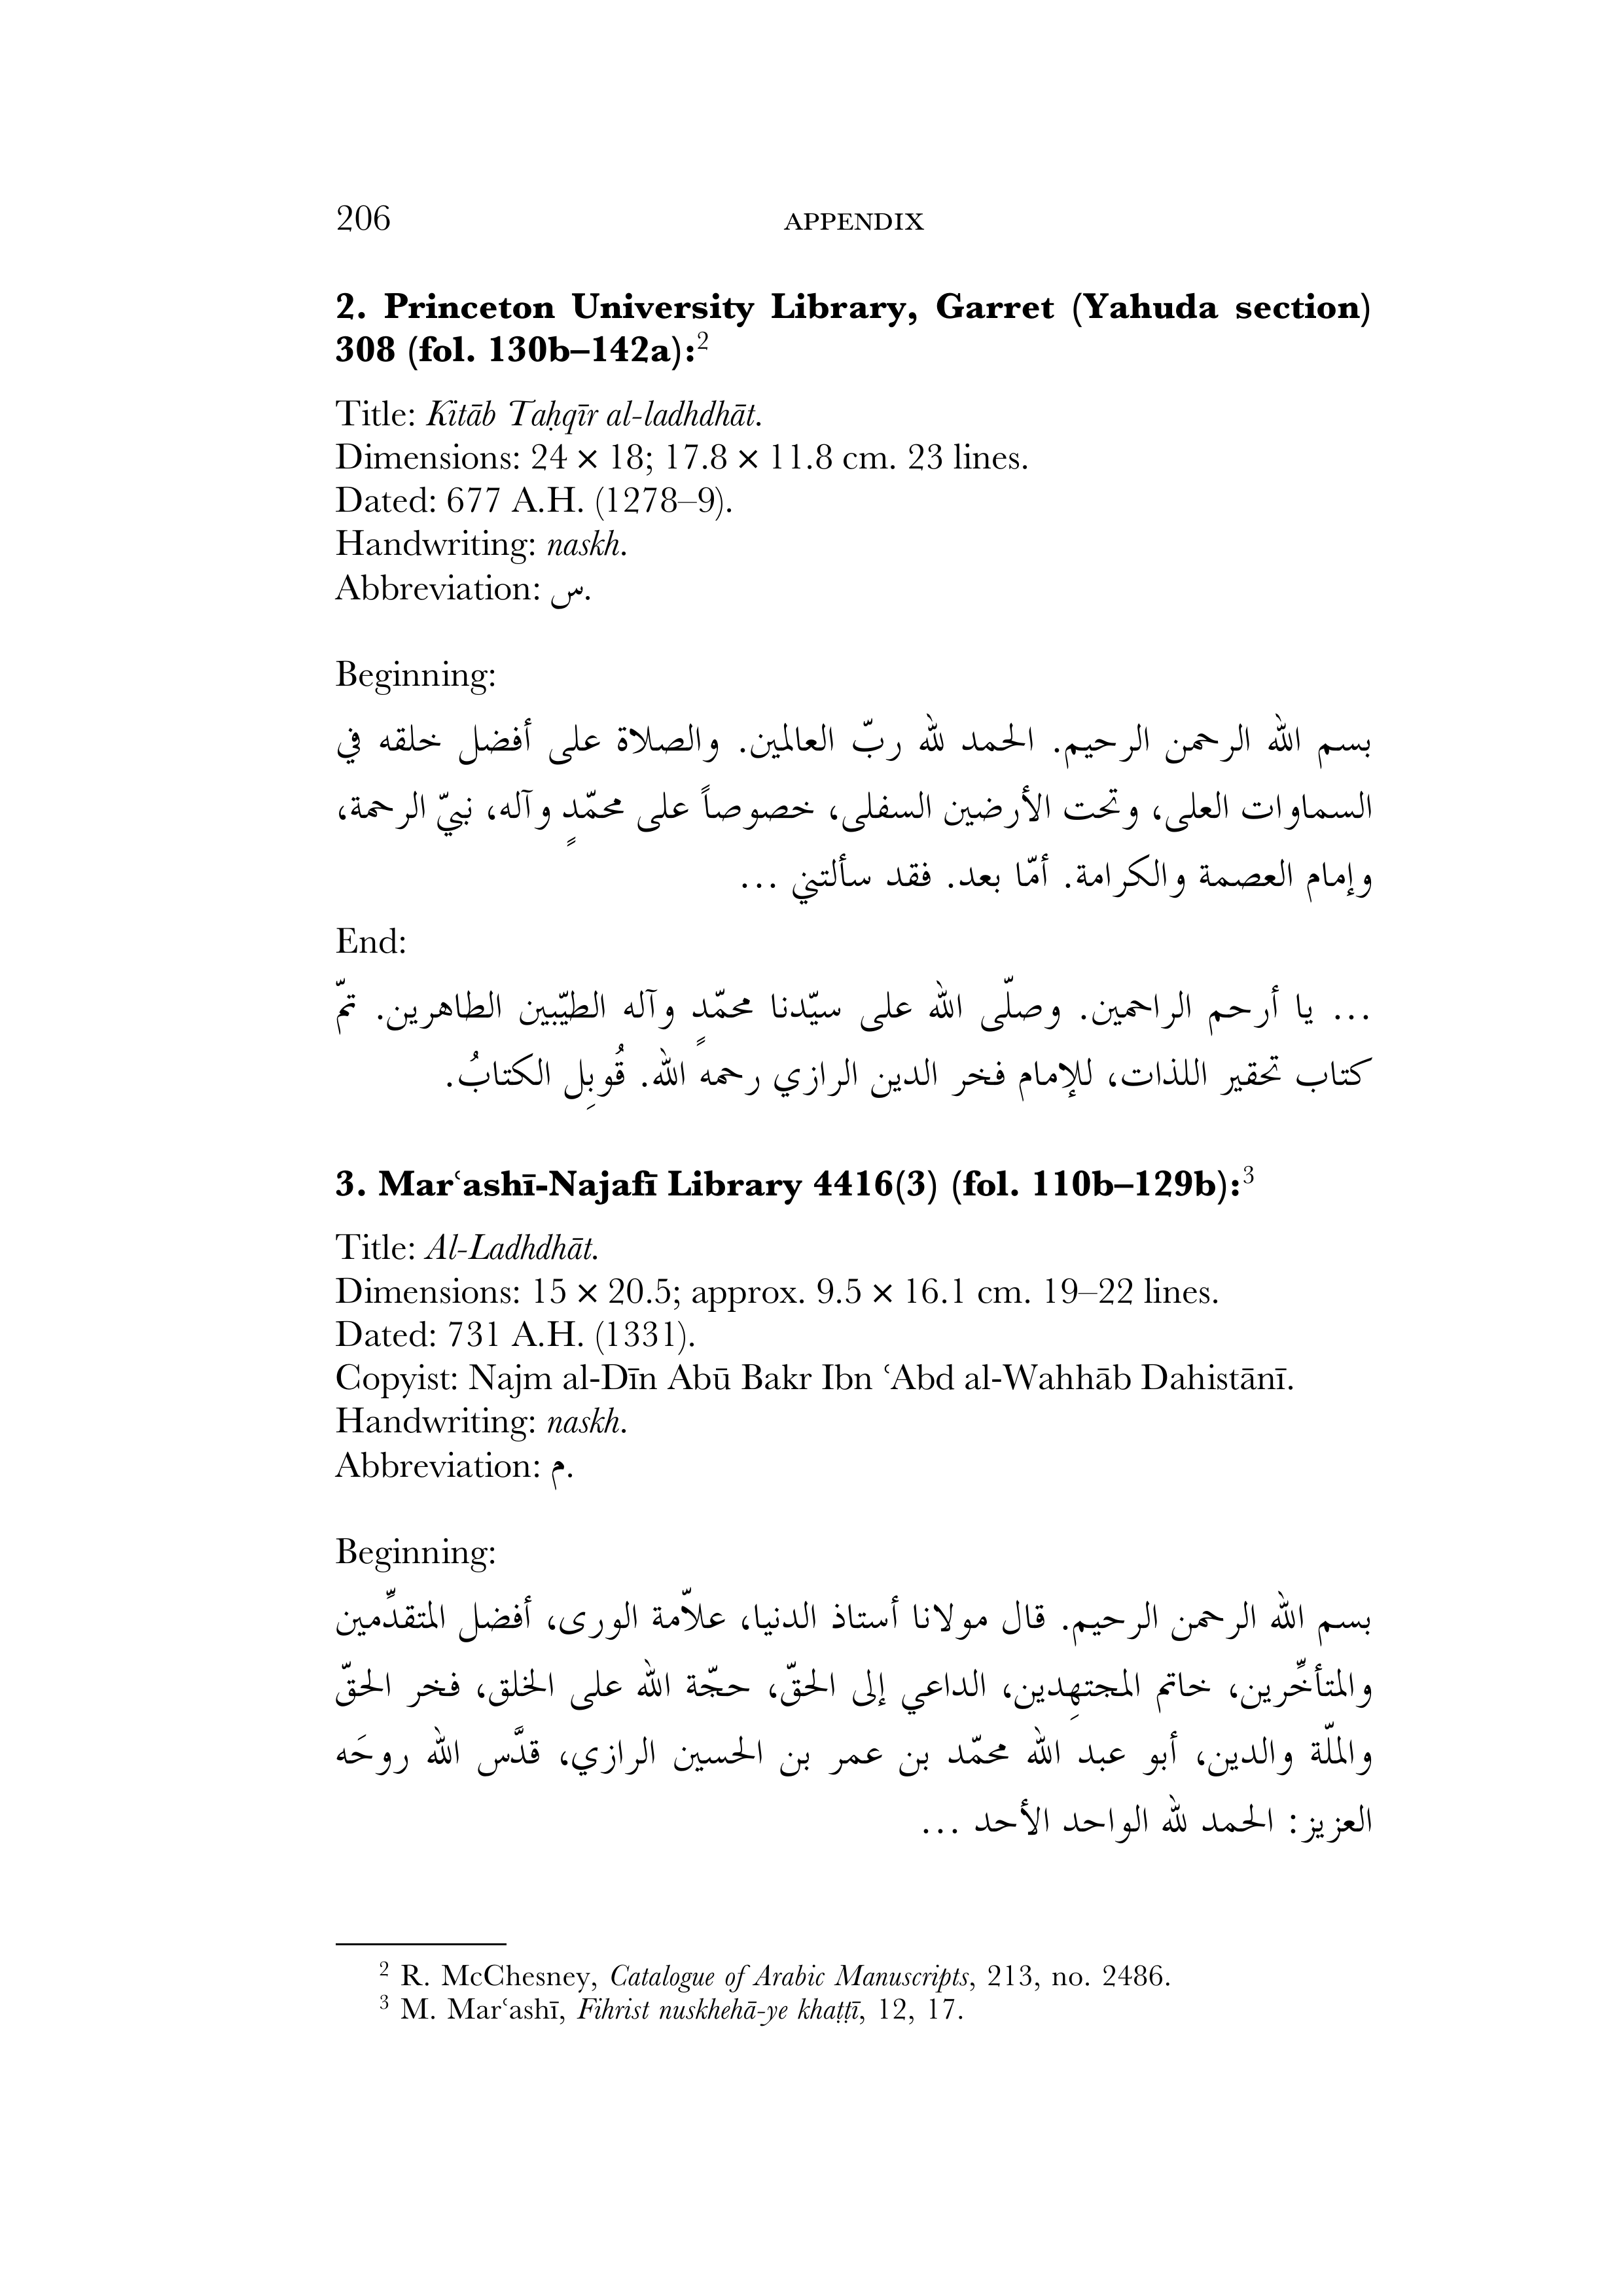 206 APPENDIX
2. Princeton University Library, Garret (Yahuda section)
308 (fol. 130b–142a):2
Title: Kitāb Taḥqīr al-ladhdhāt.
Dimensions: 24 × 18; 17.8 × 11.8 cm. 23 lines.
Dated: 677 A.H. (1278–9).
Handwriting: naskh.
Abbreviation: س.
Beginning:
بسم الله الرحمن الرحيم. الحمد لله ربّ العالمين. والصلاة على أفضل خلقه في
السماوات العلى، وتحت الأرضين السفلى، خصوصاً على محمّدٍ وآله، نبيّ الرحمة،
وإمام العصمة والكرامة. أمّا بعد. فقد سألتني ...
End:
... يا أرحم الراحمين. وصلّى الله على سيّدنا محمّدٍ وآله الطيّبين الطاهرين. تمّ
كتاب تحقير اللذات، للإمام فخر الدين الرازي رحمه الله. قُوبِل الكتابُ.
3. Marʿashī-Najafī Library 4416(3) (fol. 110b–129b):3
Title: Al-Ladhdhāt.
Dimensions: 15 × 20.5; approx. 9.5 × 16.1 cm. 19–22 lines.
Dated: 731 A.H. (1331).
Copyist: Najm al-Dīn Abū Bakr Ibn ʿAbd al-Wahhāb Dahistānī.
Handwriting: naskh.
Abbreviation: م.
Beginning:
بسم الله الرحمن الرحيم. قال مولانا أستاذ الدنيا، علاّمة الورى، أفضل المتقدِّمين
والمتأخِّرين، خاتم المجتهِدين، الداعي إلى الحقّ، حجّة الله على الخلق، فخر الحقّ
والملّة والدين، أبو عبد الله محمّد بن عمر بن الحسين الرازي، قدَّس الله روحَه
العزيز: الحمد لله الواحد الأحد ...
2 R. McChesney, Catalogue of Arabic Manuscripts, 213, no. 2486.
3 M. Marʿashī, Fihrist nuskhehā-ye khaṭṭī, 12, 17.